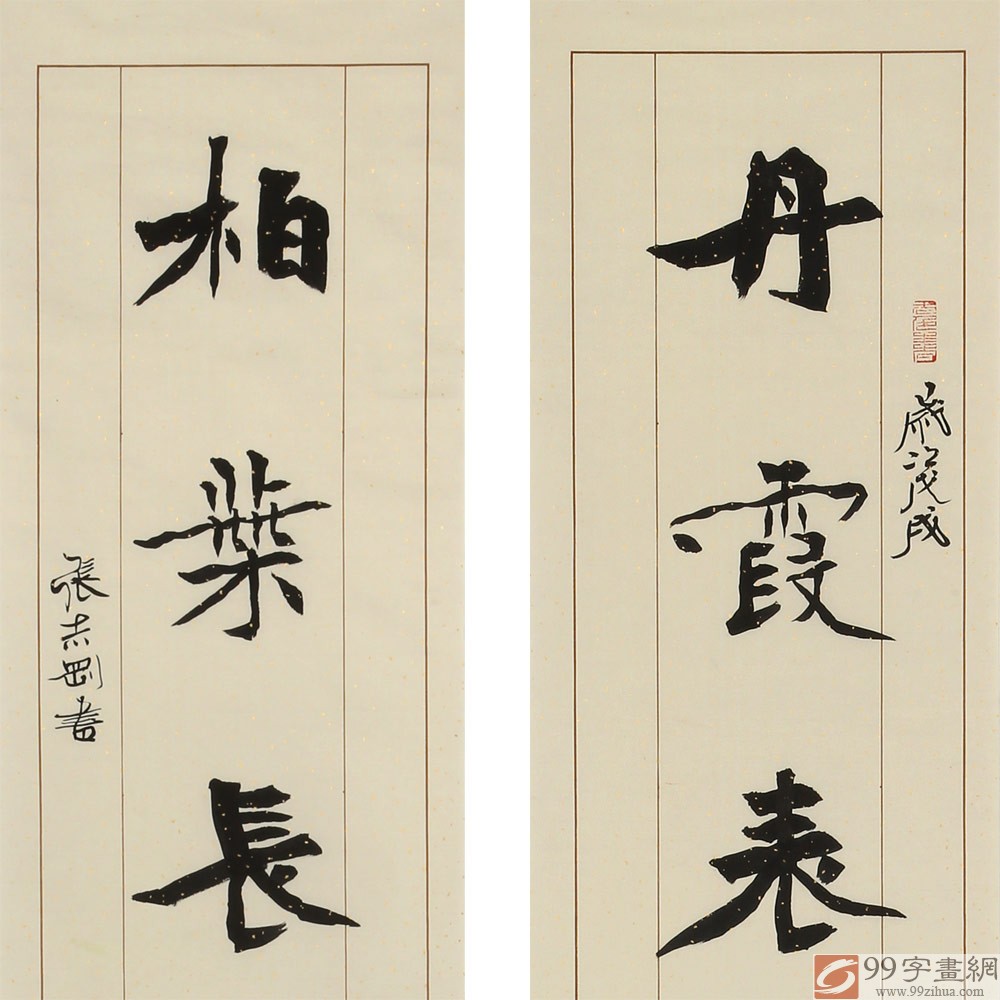 丹霞表
歲次戊戌
柏葉長
張志剛書
99字畫網
www.99zihua.com